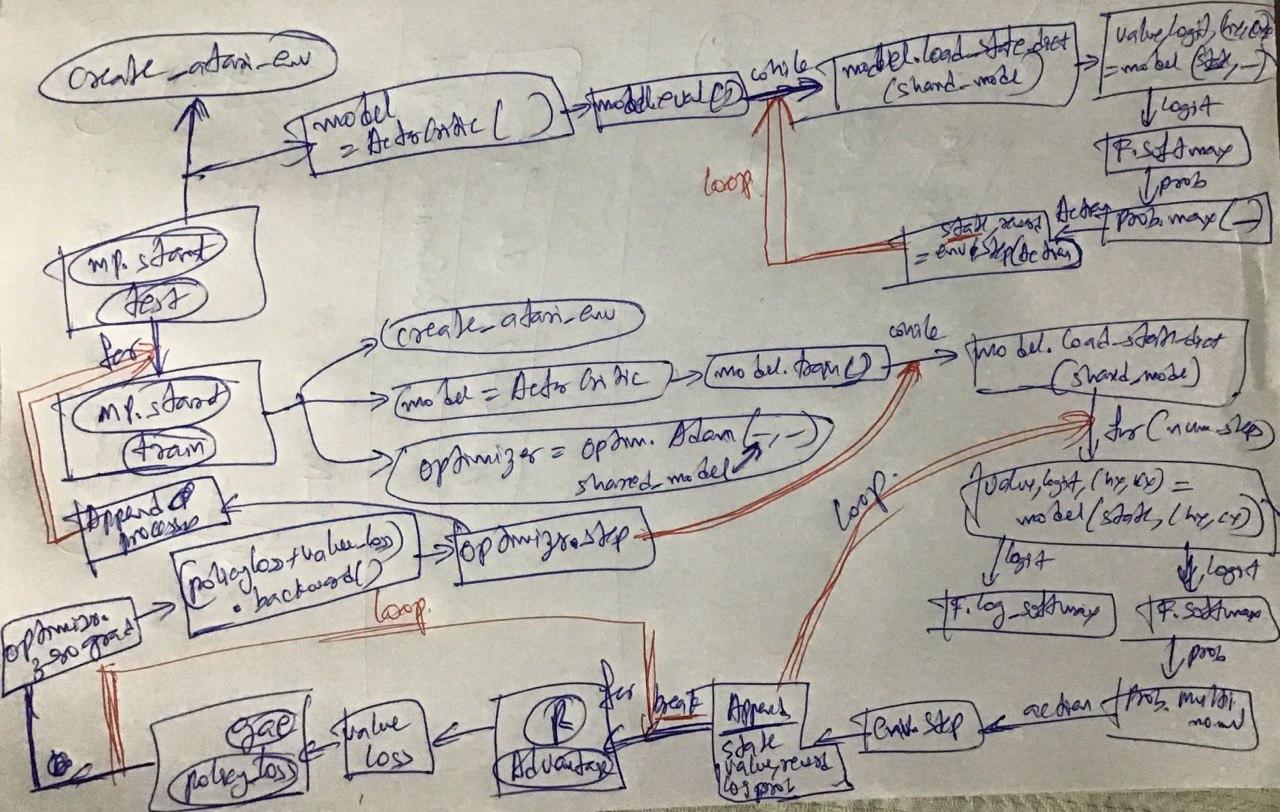 create_atari_env
model
= ActorCritic ( )
model.eval()
while
model.load_state_dict
(shared_model)
value, logit, (hx, cx)
= model (state, —)
logit
F.softmax
prob
prob.max(—)
Action
state, reward
= env.step(Action)
loop
mp.start
test
for
mp.start
train
create_atari_env
model = ActorCritic
model.train()
while
model.load_state_dict
(shared_model)
optimizer = optim. Adam (—, —)
shared_model
for (num_steps)
value, logit, (hx, cx) =
model (state, (hx, cx)
logit
logit
F.log_softmax
F.softmax
prob
Prob. multi
nomial
action
env.step
Append
state
value, reward
log prob
loop.
break
for
R
Advantage
value
loss
gae
policy_loss
loop.
optimizer.
zero grad
(policy loss + value_loss)
. backward()
optimizer.step
Append
processes